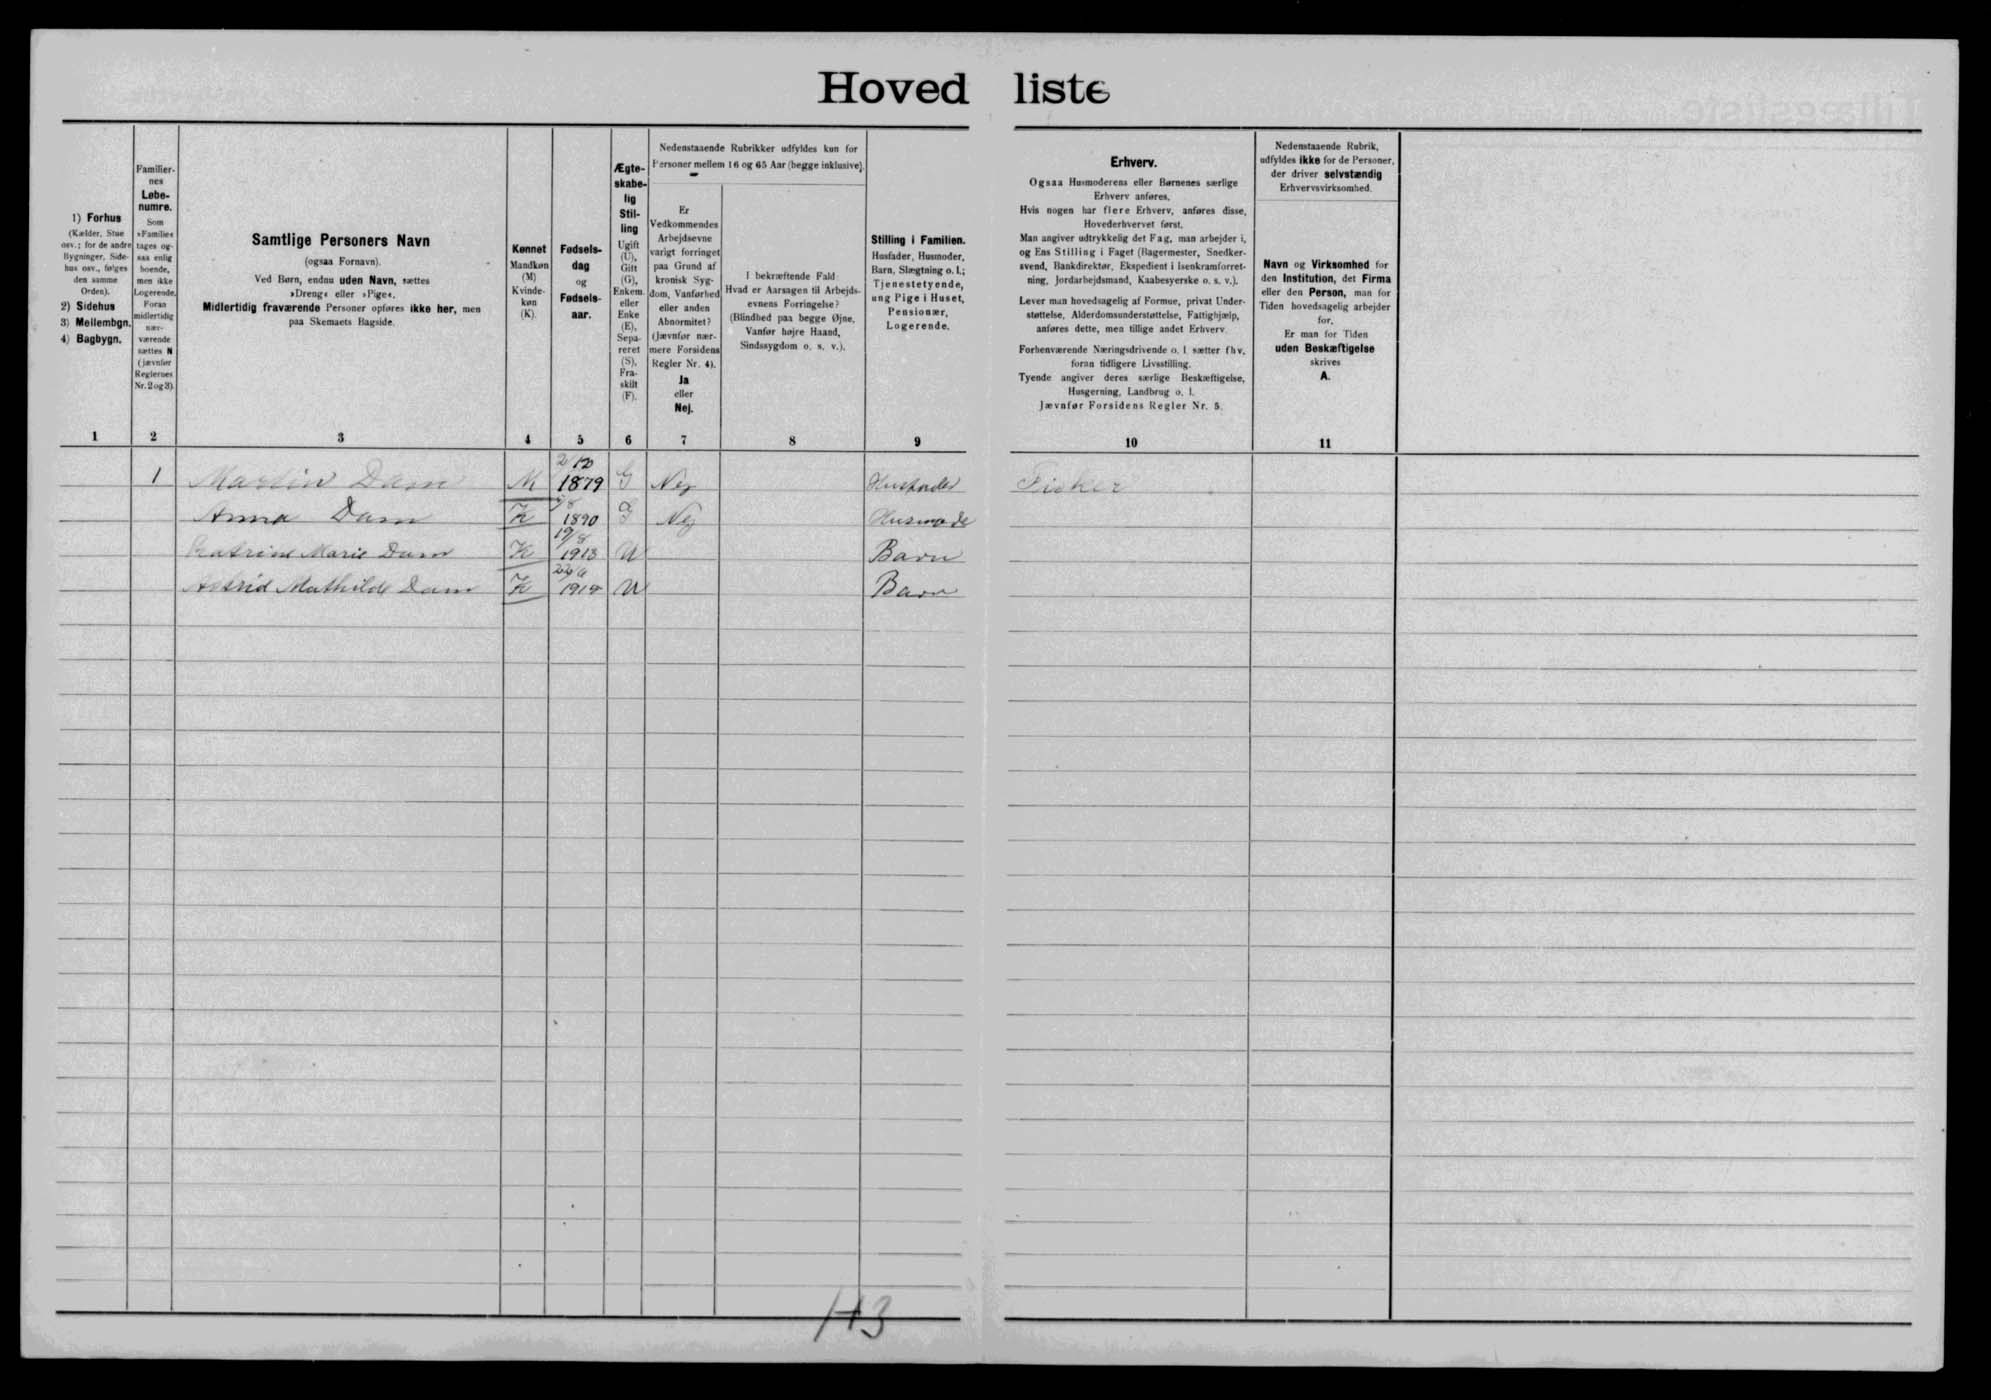 Hovedliste
1) Forhus
(Kælder, Stue
osv.; for de andre
Bygninger, Side-
hus osv., følges
den samme
Orden).
2) Sidehus
3) Mellembgn.
4) Bagbygn.
Familier-
nes
Løbe-
numre.
Som
»Familie«
tages og-
saa enlig
boende,
men ikke
Logerende.
Foran
midlertidig
nær-
værende
sættes N
(jævnfør
Reglernes
Nr. 2 og 3).
Samtlige Personers Navn
(ogsaa Fornavn).
Ved Børn, endnu uden Navn, sættes
»Dreng« eller »Pige«.
Midlertidig fraværende Personer opføres ikke her, men
paa Skemaets Bagside.
Kønnet
Mandkøn
(M)
Kvinde-
køn
(K).
Fødsels-
dag
og
Fødsels-
aar.
Ægte-
skabe-
lig
Stil-
ling
Ugift
(U),
Gift
(G),
Enkem.
eller
Enke
(E),
Sepa-
reret
(S),
Fra-
skilt
(F).
Nedenstaaende Rubrikker udfyldes kun for
Personer mellem 16 og 65 Aar (begge inklusive).
Er
Vedkommendes
Arbejdsevne
varigt forringet
paa Grund af
kronisk Syg-
dom, Vanførhed
eller anden
Abnormitet?
(Jævnfør nær-
mere Forsidens
Regler Nr. 4).
Ja
eller
Nej.
I bekræftende Fald:
Hvad er Aarsagen til Arbejds-
evnens Forringelse?
(Blindhed paa begge Øjne,
Vanfør højre Haand,
Sindssygdom o. s. v.).
Stilling i Familien.
Husfader, Husmoder,
Barn, Slægtning o. l.;
Tjenestetyende,
ung Pige i Huset,
Pensionær,
Logerende.
Erhverv.
Ogsaa Husmoderens eller Børnenes særlige
Erhverv anføres.
Hvis nogen har flere Erhverv, anføres disse,
Hovederhvervet først.
Man angiver udtrykkelig det Fag, man arbejder i,
og Ens Stilling i Faget (Bagermester, Snedker-
svend, Bankdirektør, Ekspedient i Isenkramforret-
ning, Jordarbejdsmand, Kaabesyerske o. s. v.).
Lever man hovedsagelig af Formue, privat Under-
støttelse, Alderdomsunderstøttelse, Fattighjælp,
anføres dette, men tillige andet Erhverv.
Forhenværende Næringsdrivende o. l. sætter fhv.
foran tidligere Livsstilling.
Tyende angiver deres særlige Beskæftigelse,
Husgerning, Landbrug o. l.
Jævnfør Forsidens Regler Nr. 5.
Nedenstaaende Rubrik,
udfyldes ikke for de Personer,
der driver selvstændig
Erhvervsvirksomhed.
Navn og Virksomhed for
den Institution, det Firma
eller den Person, man for
Tiden hovedsagelig arbejder
for.
Er man for Tiden
uden Beskæftigelse
skrives
A.
1 2 3 4 5 6 7 8 9 10 11
1 Martin Dam M 2/12 1879 G Nej Husfader Fisker
Anna Dam K 1890 G Nej Husmode
Katrine Marie Dam K 19/8 1913 U Barn
Astrid Mathilde Dam K U Barn
113